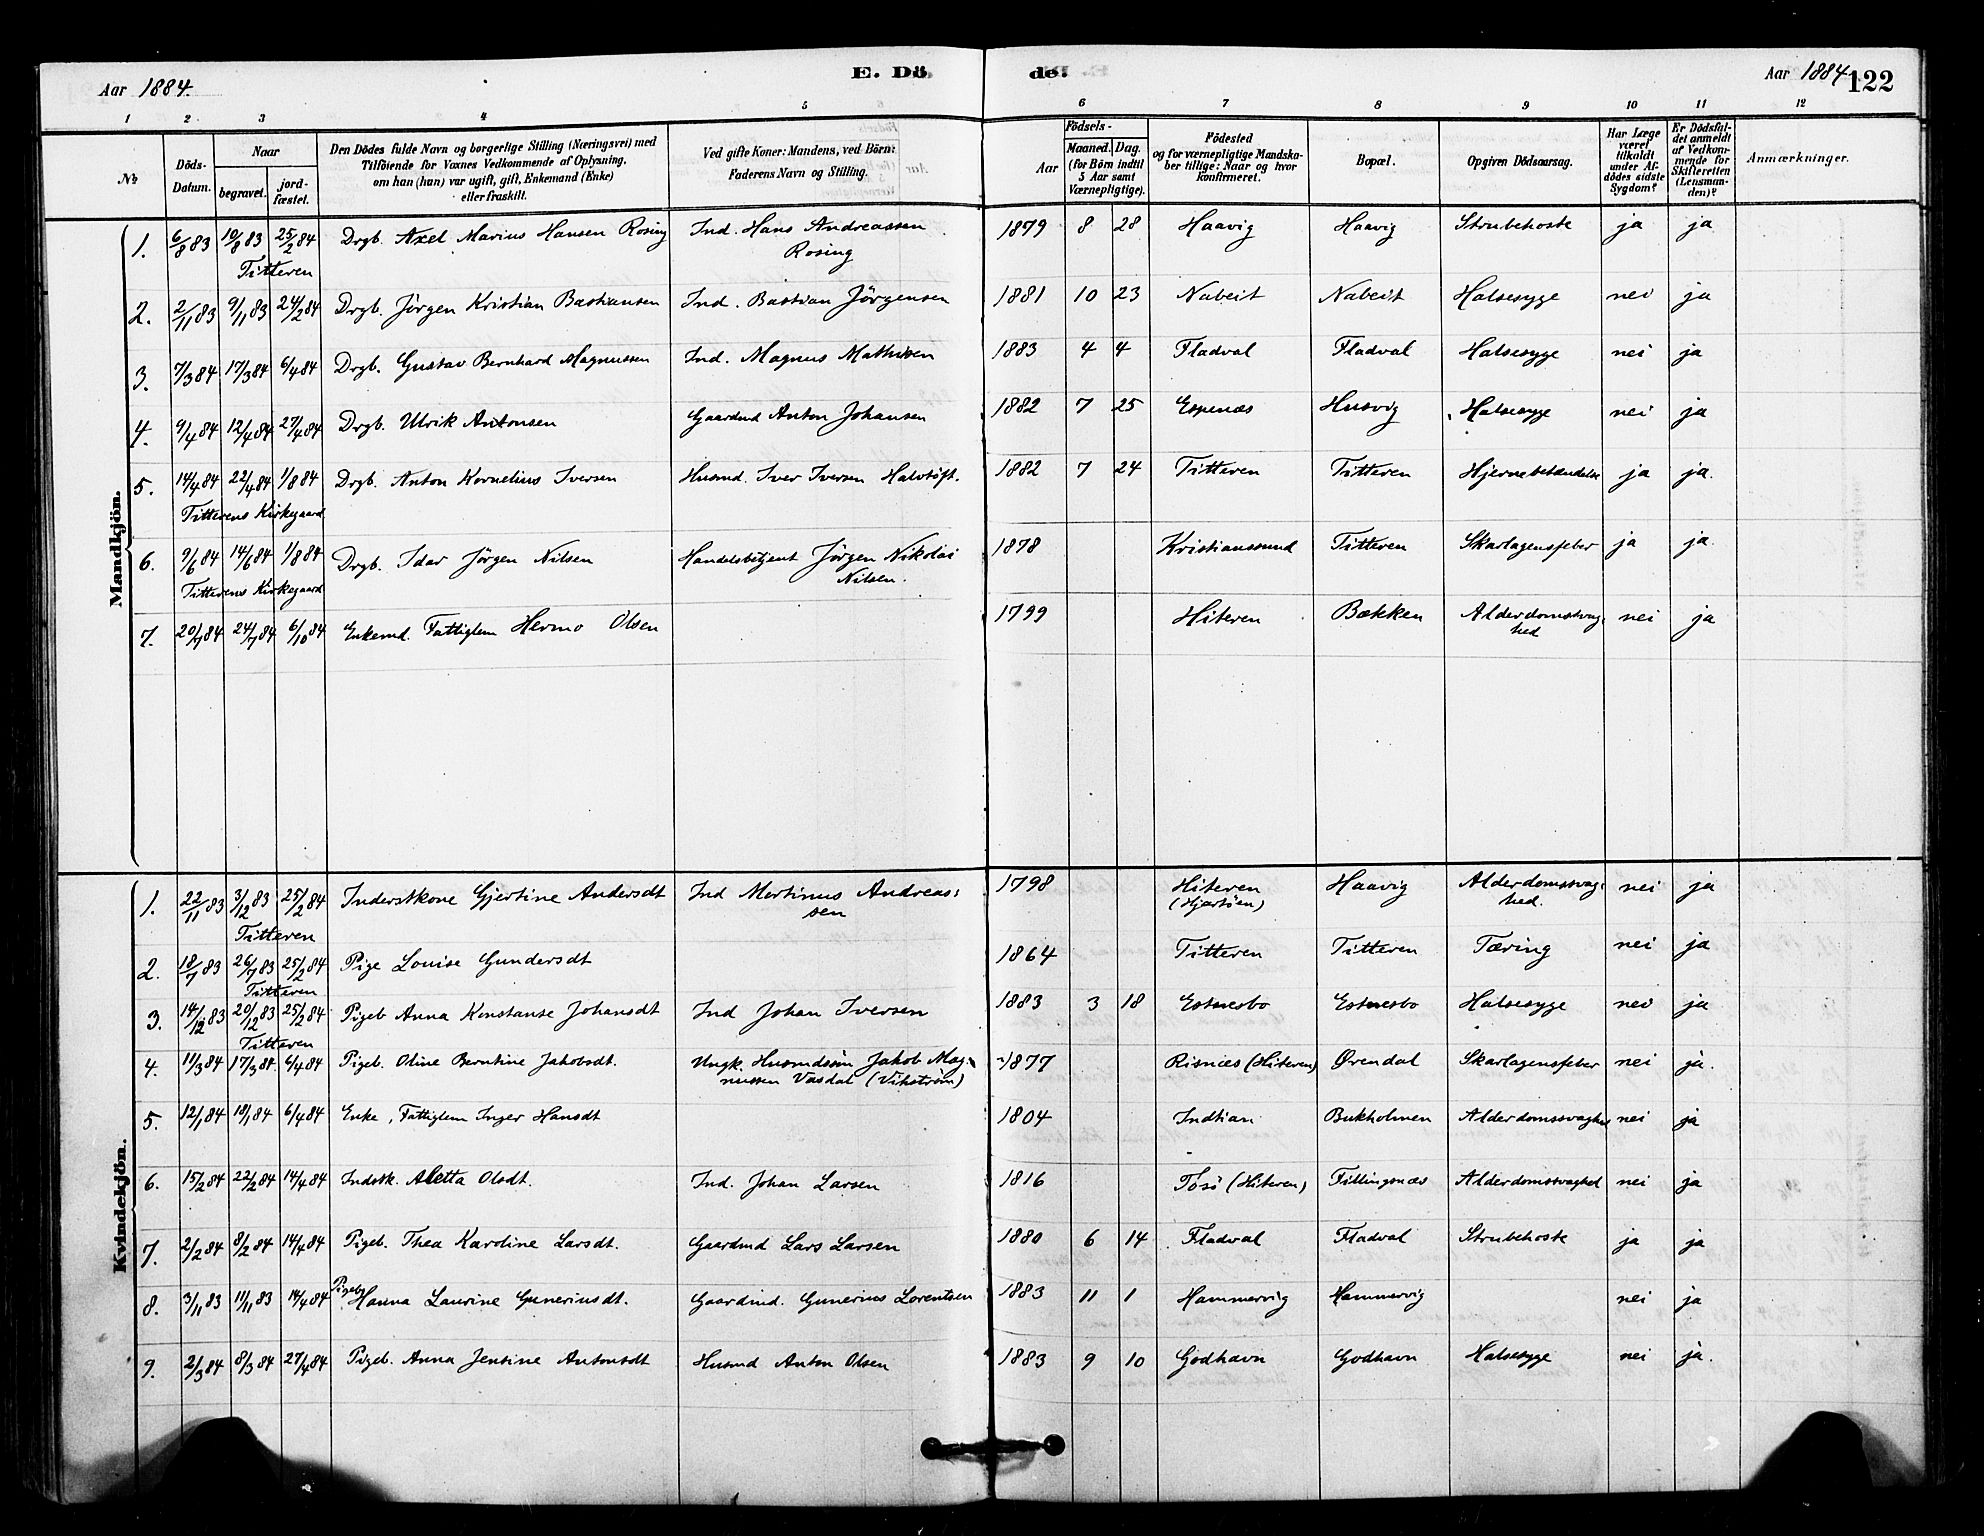 Aar 1884.
E. Dö
de.
Aar 1884
122
1 2 3 4 5 6 7 8 9 10 11 12
№
Döds-Datum.
Naar
begravet.
jordfæstet.
Den Dödes fulde Navn og borgerlige Stilling (Næringsvei) med
Tilföiende for Voxnes Vedkommende af Oplysning,
om han (hun) var ugift, gift, Enkemand (Enke)
eller fraskilt.
Ved gifte Koner: Mandens, ved Börn:
Faderens Navn og Stilling.
Födsels-
Aar
Maaned. Dag.
(for Börn indtil
5 Aar samt
Værnepligtige).
Födested
og for værnepligtige Mandska-
ber tillige: Naar og hvor
konfirmeret.
Bopæl.
Opgiven Dödsaarsag.
Har Læge
været
tilkaldt
under Af-
dödes sidste
Sygdom?
Er Dödsfal-
det anmeldt
af Vedkom-
mende for
Skifteretten
(Lensman-
den)?
Anmærkninger.
Mandkjön.
1. 6/8 83 10/8 83 25/2 84 Drgb. Axel Marius Hansen Rosing Ind. Hans Andreassen 1879 8 28 Haavig Haavig Strubehoste ja ja
Titteren Rosing
2. 2/11 83 9/11 83 24/2 84 Drgb. Jörgen Kristian Bastiansen Ind. Bastian Jörgensen 1881 10 23 Nabeit Nabeit Halsesyge nei ja
3. 7/3 84 17/3 84 6/4 84 Drgb. Gustav Bernhard Magnussen Ind. Magnus Mathisen 1883 4 4 Fladval Fladval Halsesyge nei ja
4. 9/4 84 12/4 84 27/4 84 Drgb. Ulrik Antonsen Gaardmd Anton Johansen 1882 7 25 Espenæs Husvig Halsesyge nei ja
5. 14/4 84 22/4 84 1/8 84 Drgb. Anton Kornelius Iversen Husmd. Iver Iversen Halvtöft. 1882 7 24 Titteren Titteren Hjernebetændelse ja ja.
Titterens Kirkegaard
6. 9/6 84 14/6 84 1/8 84 Drgb. Idar Jörgen Nilsen Handelsbetjent Jörgen Nikolai 1878 Kristianssund Titteren Skarlagensfeber ja ja.
Titterens Kirkegaard Nilsen.
7. 20/7 84 24/7 84 6/10 84 Enkemd. Fattiglem Hermo Olsen 1799 Hiteren Bækken Alderdomssvag- nei ja
hed
Kvindekjön.
1. 22/11 83 3/12 83 25/2 84 Inderstkone Gjertine Andersdt Ind Martinus Andreas: 1798 Hiteren Haavig Alderdomssvag: nei ja
Titteren sen (Hjertöen) hed.
2. 18/7 83 26/7 83 25/2 84 Pige Louise Gundersdt 1864 Titteren Titteren Tæring nei ja
Titteren
3. 14/12 83 20/12 83 25/2 84 Pigeb Anna Konstanse Johansdt Ind Johan Iversen 1883 3 18 Estnesbo Estnesbo Halsesyge nei ja
Titteren
4. 11/3 84 17/3 84 6/4 84 Pigeb. Oline Berntine Jakobsdt. Ungk. Husmdssön Jakob Mag- 1877 Risnæs (Hiteren) Ørendal Skarlagensfeber nei ja.
nussen Vasdal (Vikström)
5. 12/1 84 18/1 84 6/4 84 Enke, Fattiglem Inger Hansdt 1804 Indtian Bukholmen Alderdomssvaghed nei ja
6. 15/2 84 22/2 84 14/4 84 Indstk. Aletta Olsdt. Ind. Johan Larsen 1816 Tösö (Hiteren) Fillingsnæs Alderdomssvaghed nei ja
7. 2/2 84 8/2 84 14/4 84 Pigeb. Thea Karoline Larsdt. Gaardmd Lars Larsen 1880 6 14 Fladval Fladval Strubehoste ja ja
8. 3/11 83 11/11 83 14/4 84 Pigeb. Hanna Laurine Guneriusdt. Gaardmd. Gunerius Lorentsen 1883 11 1 Hammervig Hammervig nei ja
9. 2/3 84 8/3 84 27/4 84 Pigeb. Anna Jensine Antonsdt Husmd Anton Olsen 1883 9 10 Godhavn Godhavn Halsesyge nei ja.